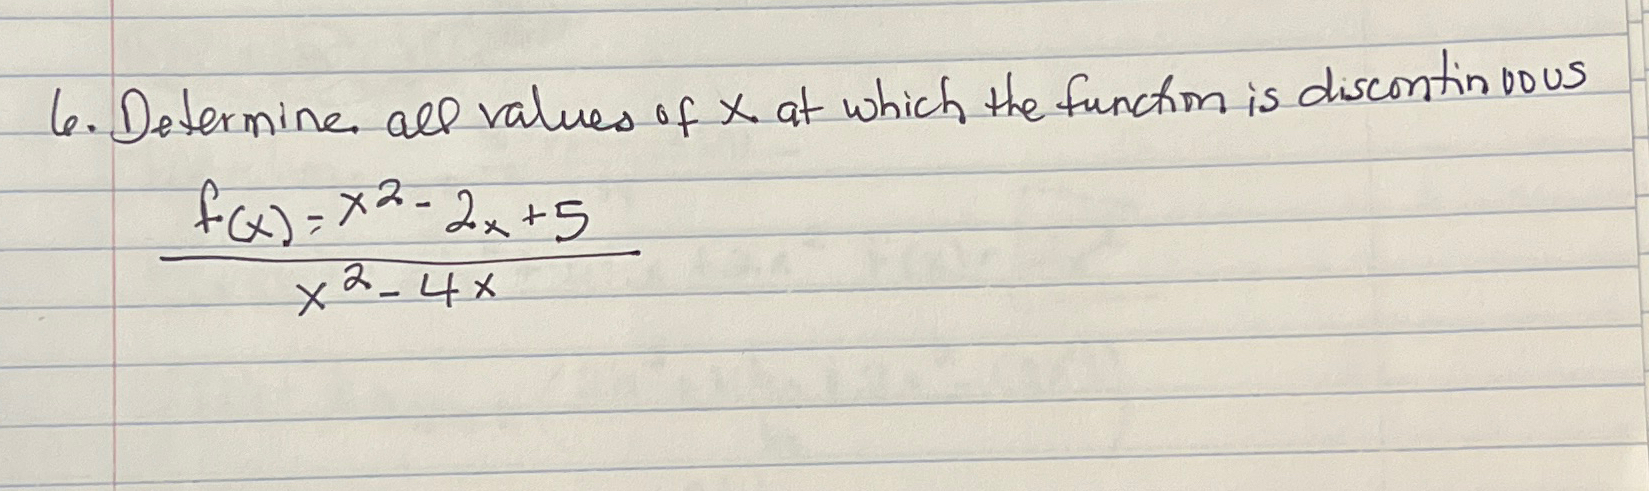 6. Determine all values of x at which the function is discontinuous
f(x) = x² - 2x + 5
x² - 4x